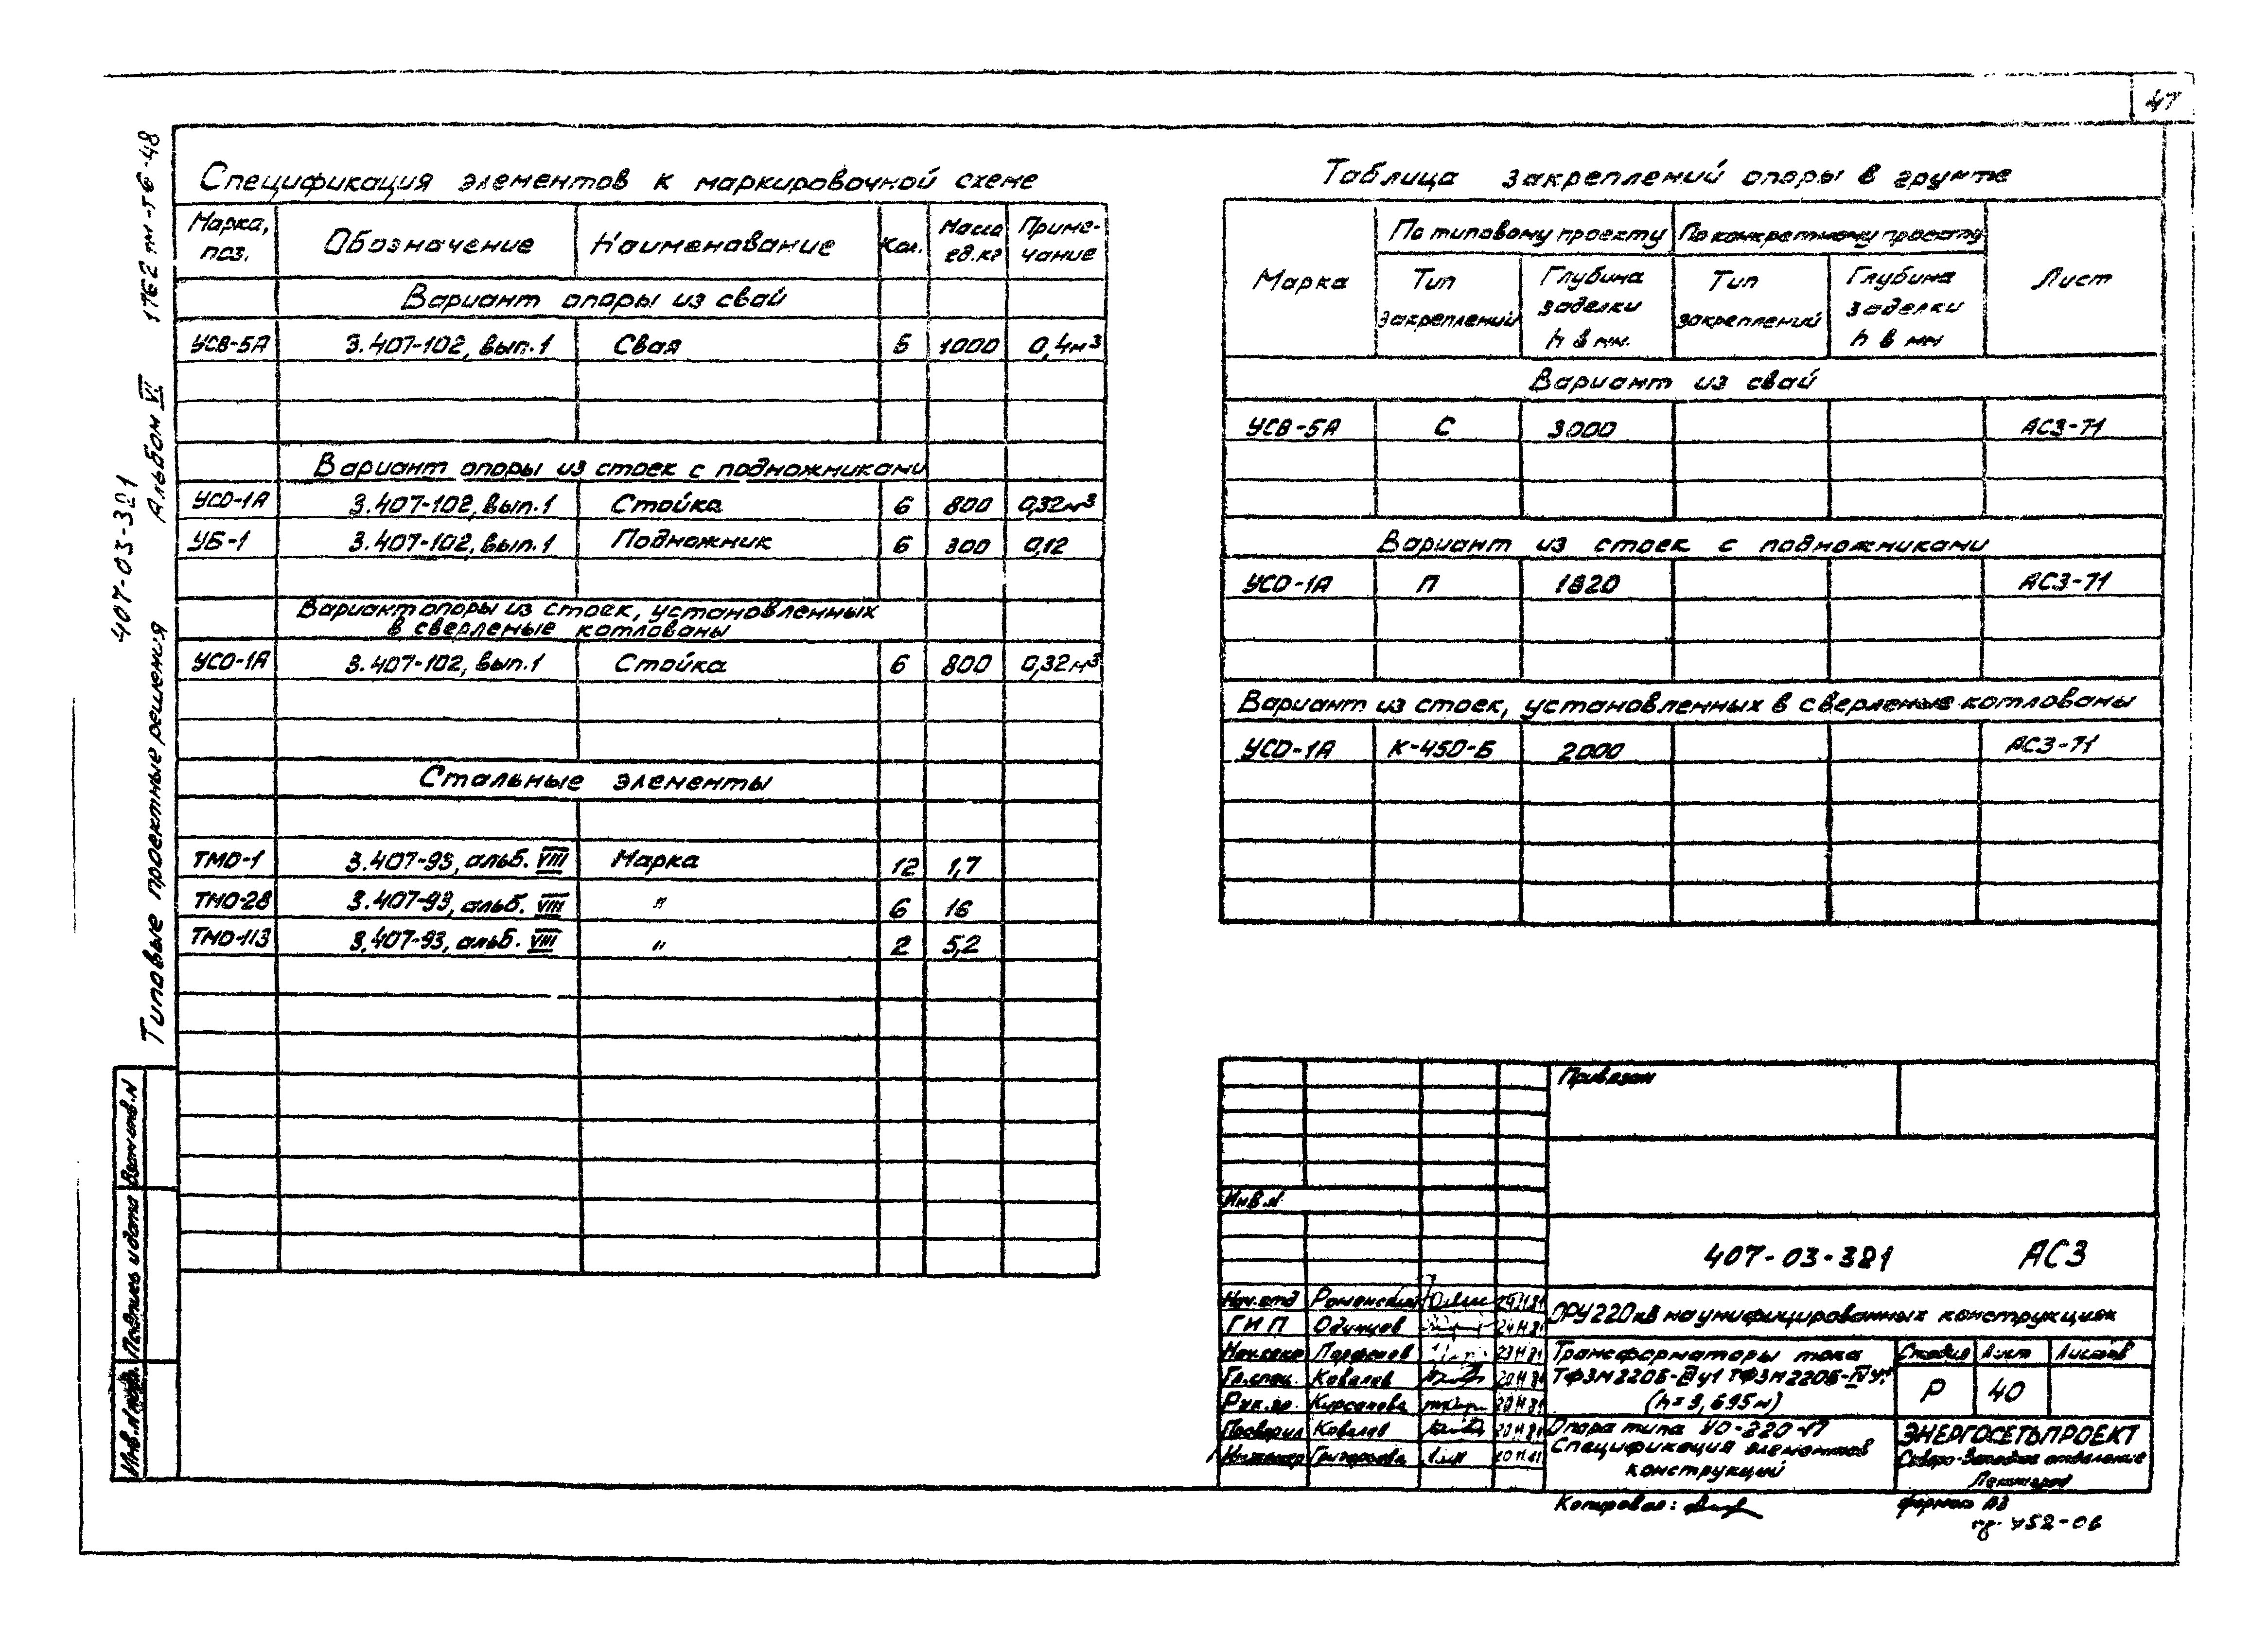 47
407-03-381
Типовые проектные решения Альбом VI.
Спецификация элементов к маркировочной схеме
Марка, поз. Обозначение Наименование Кол. Масса ед.кг Приме-чание
Вариант опоры из свай
УСВ-5А 3.407-102, вып.1 Свая 6 1000 0,4м³
Вариант опоры из стоек с подножниками
УСО-1А 3.407-102, вып.1 Стойка 6 800 0,32м³
УБ-1 3.407-102, вып.1 Подножник 6 300 0,12
Вариант опоры из стоек, установленных
в сверленые котлованы
УСО-1А 3.407-102, вып.1 Стойка 6 800 0,32м³
Стальные элементы
ТМО-1 3.407-93, альб. VIII Марка 12 1,7
ТМО-28 3.407-93, альб. VIII " 6 16
ТМО-113 3.407-93, альб. VIII " 2 5,2
Таблица закреплений опоры в грунте
Марка По типовому проекту По конкретному проекту Лист
Тип закреплений Глубина заделки h в мм. Тип закреплений Глубина заделки h в мм
Вариант из свай
УСВ-5А С 3000 АС3-71
Вариант из стоек с подножниками
УСО-1А П 1820 АС3-71
Вариант из стоек, установленных в сверленые котлованы
УСО-1А К-450-Б 2000 АС3-71
Взам инв.N
Подпись и дата
Инв.N подл.
Привязан
Инв.N
407-03-381 АС3
Нач.отд Роменский
ГИП Одинцов
Парфенов
Гл.спец. Ковалев
Рук.гр. Курсанова
Проверил Ковалев
Инженер Григорьева
ОРУ220кВ на унифицированных конструкциях
Трансформаторы тока
ТФЗМ220Б-III у1 ТФЗМ220Б-IV У1
(h=3,695м)
Стадия Лист Листов
Р 40
Опора типа УО-220-17
Спецификация элементов
конструкций
ЭНЕРГОСЕТЬПРОЕКТ
Северо-Западное отделение
Ленинград
Копировал:
формат А3